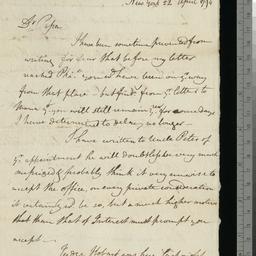 New York 22 April 1794
Dr Papa
I have been sometime prevented from
writing for fear that before my letter
reached Phi. you wd have been on yr way
from that place. but find from yr letter to
Mama yt you will still remain yr for some days
I have determined to delay no longer—
I have written to Uncle Peter of
yr appointment he will doubtless be very much
surprized & probably think it very unwise to
accept the office, on every private consideration
it certainly wd be so, but a much higher motive
than that of Interest must prompt you
accept—
Judge Hobart was here last night